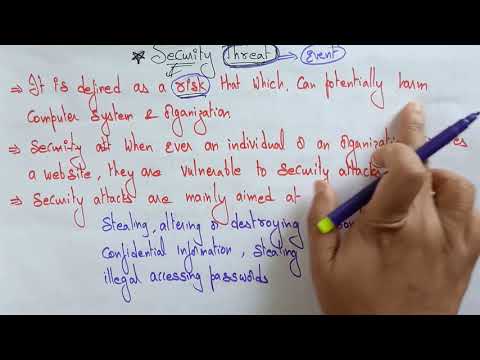 * Security Threat → Event
⇒ It is defined as a risk that which. Can potentially harm
Computer System & Organization
⇒ Security at when ever an individual or an organization es
a website, they are vulnerable to security attacks
⇒ Security attacks are mainly aimed at
Stealing, altering or destroying
Confidential Information, stealing
illegal accessing passwords